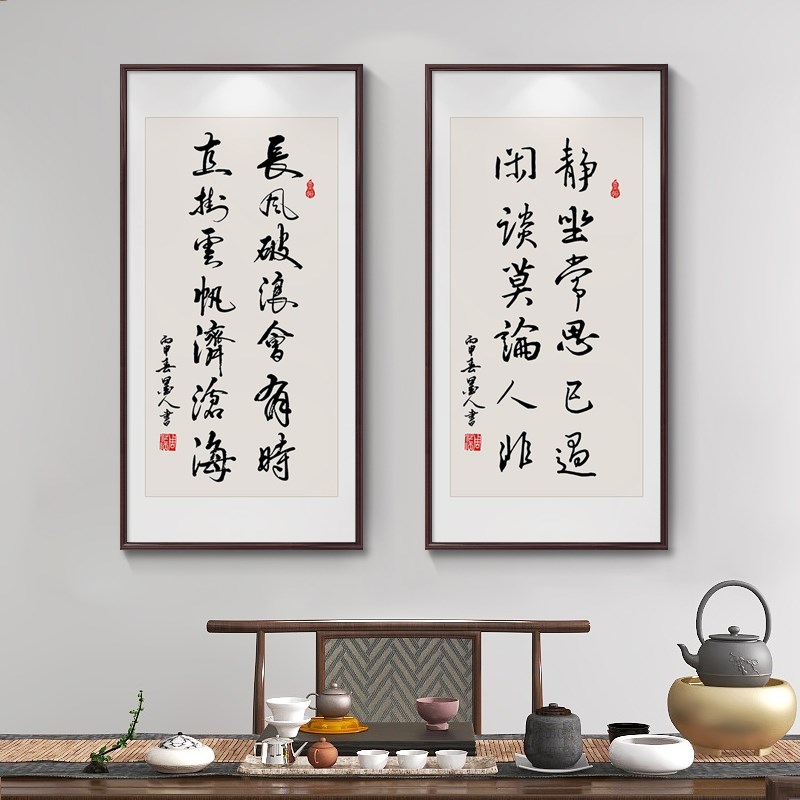 静坐常思己過
閑談莫論人非
丙申春墨人書
長風破浪會有時
直掛雲帆濟滄海
丙申春墨人書